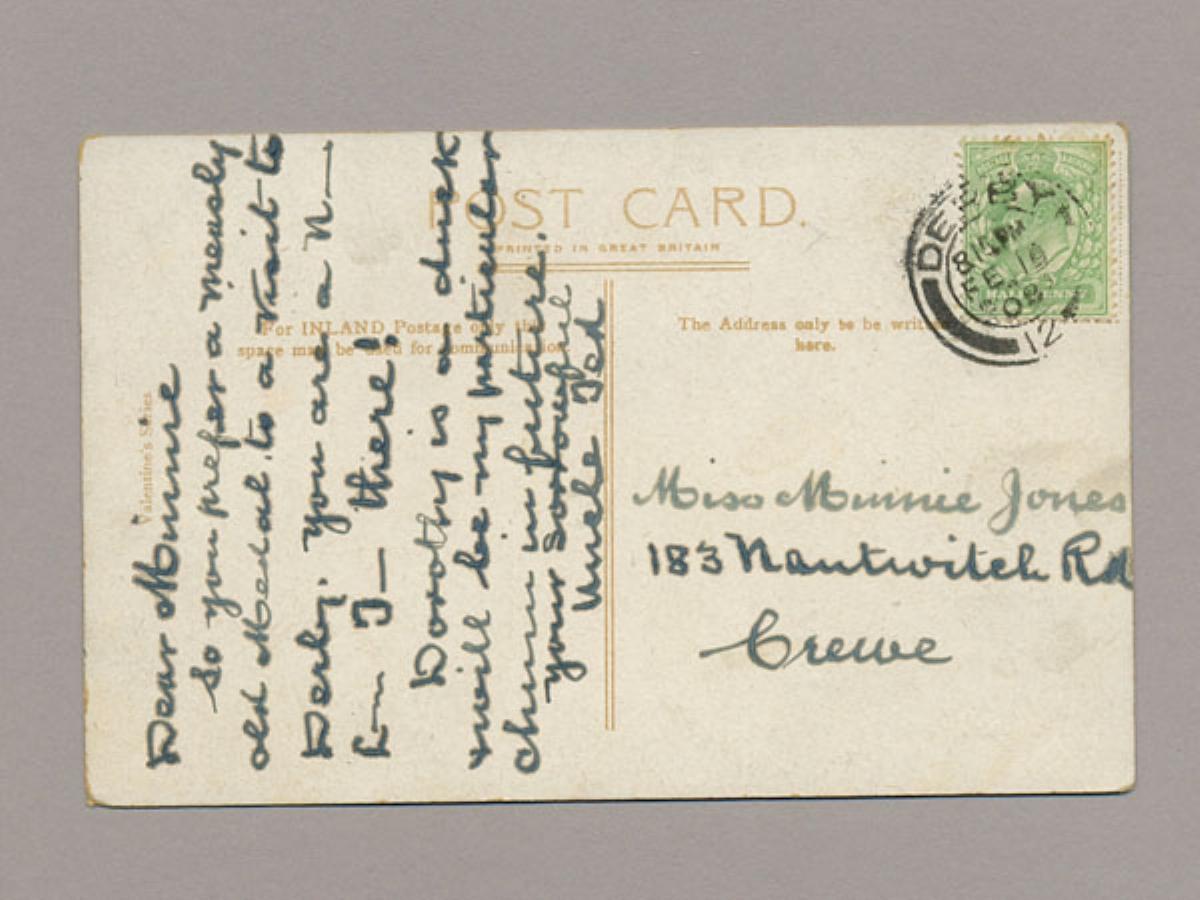 POST CARD.
PRINTED IN GREAT BRITAIN
For INLAND Postage only this
space may be used for communication.
The Address only to be written
here.
Valentine's Series
Dear Minnie
So you prefer a measly
old Medal to a visit to
Derby. You are a N—
L— I— there!
Dorothy is a duck
& will be my particular
chum in future.
your sorrowful
Uncle Ted
Miss Minnie Jones
183 Nantwitch Rd
Crewe
DERBY
8 15 PM
FE 19
08
12
HALFPENNY